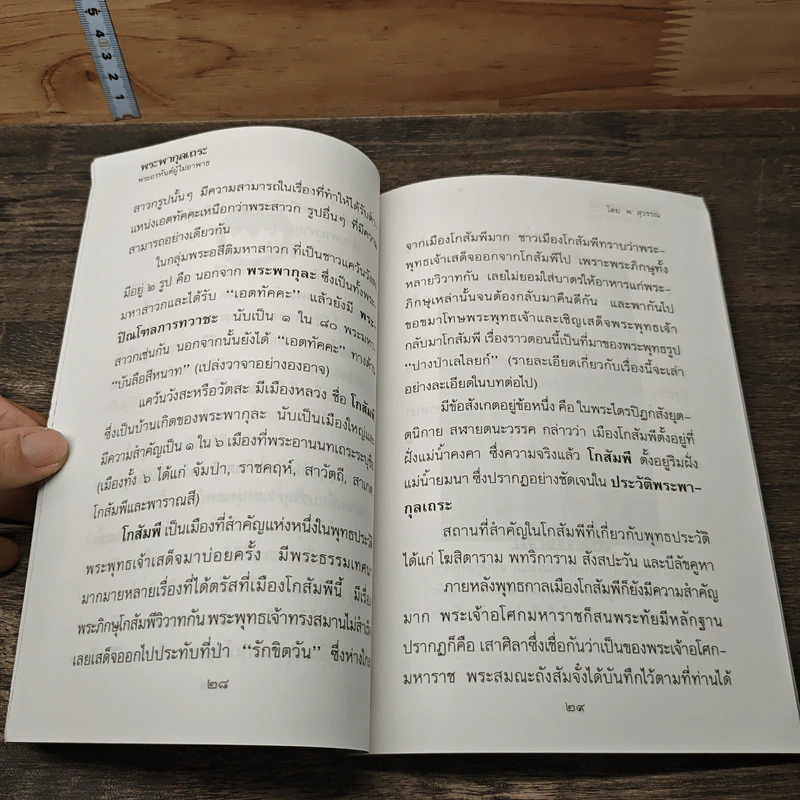 5 4 3 2 1
พระพากุลเถระ
พระอรหันต์ผู้ไม่อาพาธ
สาวกรูปนั้นๆ มีความสามารถในเรื่องที่ทำให้ได้รับ
แหน่งเอตทัคคะเหนือกว่าพระสาวก รูปอื่นๆ ที่มีความ
สามารถอย่างเดียวกัน
ในกลุ่มพระอสีติมหาสาวก ที่เป็นชาวแคว้นวังสะ
มีอยู่ ๒ รูป คือ นอกจาก พระพากุละ ซึ่งเป็นทั้งพระ
มหาสาวกและได้รับ “เอตทัคคะ” แล้วยังมี พระ
ปิณโฑลภารทวาชะ นับเป็น ๑ ใน ๘๐ พระมหา
สาวกเช่นกัน นอกจากนั้นยังได้ “เอตทัคคะ” ทางด้าน
“บันลือสีหนาท” (เปล่งวาจาอย่างองอาจ)
แคว้นวังสะหรือวัตสะ มีเมืองหลวง ชื่อ โกสัมพี
ซึ่งเป็นบ้านเกิดของพระพากุละ นับเป็นเมืองใหญ่และ
มีความสำคัญเป็น ๑ ใน ๖ เมืองที่พระอานนทเถระระบุชื่อ
(เมืองทั้ง ๖ ได้แก่ จัมปา, ราชคฤห์, สาวัตถี, สาเกต
โกสัมพีและพาราณสี)
โกสัมพี เป็นเมืองที่สำคัญแห่งหนึ่งในพุทธประวัติ
พระพุทธเจ้าเสด็จมาบ่อยครั้ง มีพระธรรมเทศนา
มากมายหลายเรื่องที่ได้ตรัสที่เมืองโกสัมพีนี้ มีเรื่อง
พระภิกษุโกสัมพีวิวาทกัน พระพุทธเจ้าทรงสมานไม่สำเร็จ
เลยเสด็จออกไปประทับที่ป่า “รักขิตวัน” ซึ่งห่างไกล
๒๘
โดย พ. สุวรรณ
จากเมืองโกสัมพีมาก ชาวเมืองโกสัมพีทราบว่าพระ–
พุทธเจ้าเสด็จออกจากโกสัมพีไป เพราะพระภิกษุทั้ง
หลายวิวาทกัน เลยไม่ยอมใส่บาตรให้อาหารแก่พระ–
ภิกษุเหล่านั้นจนต้องกลับมาคืนดีกัน และพากันไป
ขอขมาโทษพระพุทธเจ้าและเชิญเสด็จพระพุทธเจ้า
กลับมาโกสัมพี เรื่องราวตอนนี้เป็นที่มาของพระพุทธรูป
“ปางป่าเลไลยก์” (รายละเอียดเกี่ยวกับเรื่องนี้จะเล่า
อย่างละเอียดในบทต่อไป)
มีข้อสังเกตอยู่ข้อหนึ่ง คือ ในพระไตรปิฎกสังยุต–
ตนิกาย สหายตนะวรรค กล่าวว่า เมืองโกสัมพีตั้งอยู่ที่
ฝั่งแม่น้ำคงคา ซึ่งความจริงแล้ว โกสัมพี ตั้งอยู่ริมฝั่ง
แม่น้ำยมนา ซึ่งปรากฏอย่างชัดเจนใน ประวัติพระพา–
กุลเถระ
สถานที่สำคัญในโกสัมพีที่เกี่ยวกับพุทธประวัติ
ได้แก่ โฆสิตาราม พทริการาม สังสปะวัน และบีลัขคูหา
ภายหลังพุทธกาลเมืองโกสัมพีก็ยังมีความสำคัญ
มาก พระเจ้าอโศกมหาราชก็สนพระทัยมีหลักฐาน
ปรากฏก็คือ เสาศิลาซึ่งเชื่อกันว่าเป็นของพระเจ้าอโศก–
มหาราช พระสมณะถังสัมจั๋งได้บันทึกไว้ตามที่ท่านได้
๒๙